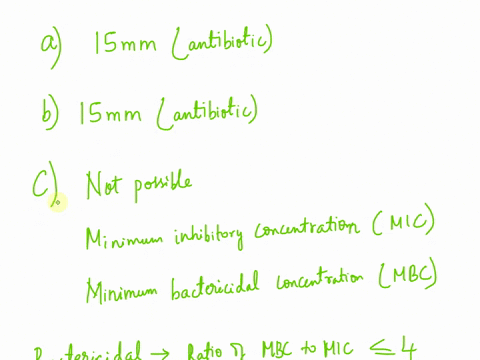 a) 15mm (antibiotic)
b) 15mm (antibiotic)
C). Not possible
Minimum inhibitory concentration (MIC)
Minimum bactericidal concentration (MBC)
Bactericidal → Ratio of MBC to MIC ≤ 4